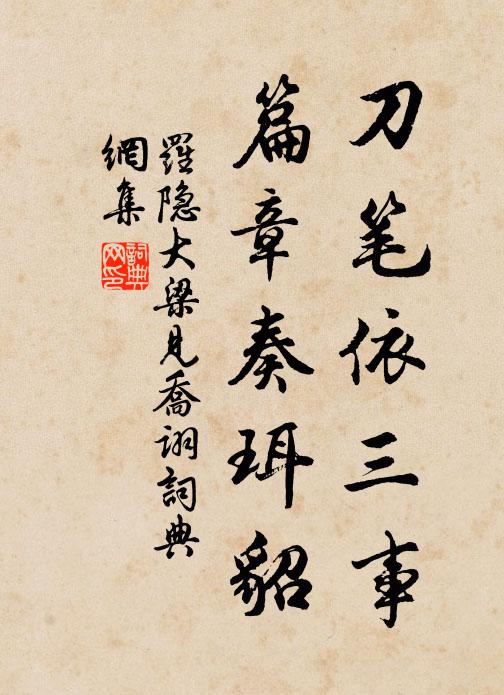 刀笔依三事
篇章奏珥貂
羅隐大梁見喬詡詞典
網集
詞典
网印